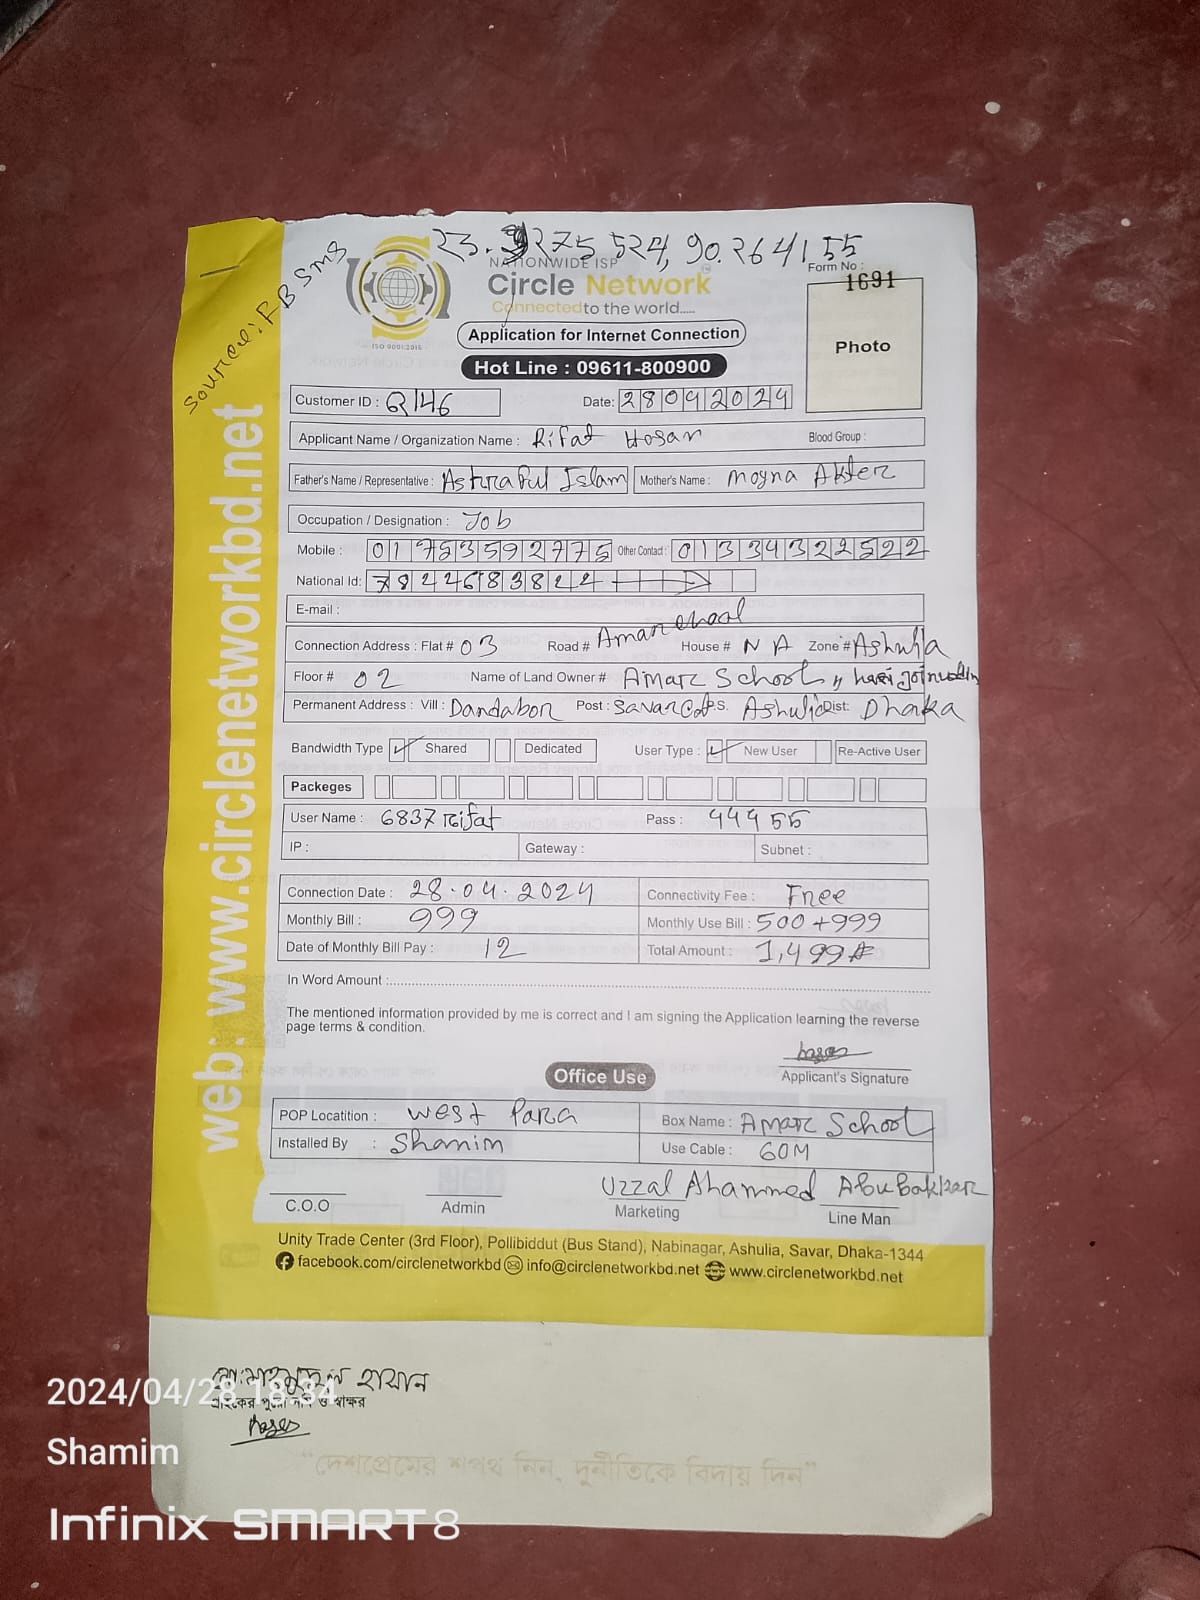 23.9275524, 90.264155
Source: FB SMS
NATIONWIDE ISP
Circle Network
Connected to the world.....
ISO 9001:2015
Form No :
1691
Photo
Application for Internet Connection
Hot Line : 09611-800900
Customer ID : 2146 Date: 28042024
Applicant Name / Organization Name : Rifat Hosan Blood Group :
Father's Name / Representative : Ashraful Islam Mother's Name : Moyna Akter
Occupation / Designation : Job
Mobile : 01753592775 Other Contact : 01334322522
National Id: 7822683824
E-mail :
Connection Address : Flat # 03 Road # Aman House # N A Zone # Ashulia
Floor # 02 Name of Land Owner # Amar School
Permanent Address : Vill : Dandabor Post : Savar P.S. Ashulia Dist: Dhaka
Bandwidth Type Shared Dedicated User Type : New User Re-Active User
Packeges
User Name : 6837rifat Pass : 44455
IP : Gateway : Subnet :
Connection Date : 28.04.2024 Connectivity Fee : Free
Monthly Bill : 999 Monthly Use Bill : 500+999
Date of Monthly Bill Pay : 12 Total Amount : 1,499
In Word Amount :
The mentioned information provided by me is correct and I am signing the Application learning the reverse
page terms & condition.
Applicant's Signature
Office Use
POP Locatition : West Para Box Name : Amar School
Installed By : Shamim Use Cable : 60M
Uzzal Ahammed Abu Bakkar
C.O.O Admin Marketing Line Man
Unity Trade Center (3rd Floor), Pollibiddut (Bus Stand), Nabinagar, Ashulia, Savar, Dhaka-1344
facebook.com/circlenetworkbd info@circlenetworkbd.net www.circlenetworkbd.net
web: www.circlenetworkbd.net
মো: মাহমুদুল হাসান
গ্রাহকের পুরো নাম ও স্বাক্ষর
"দেশপ্রেমের শপথ নিন, দুর্নীতিকে বিদায় দিন"
2024/04/28 18:34
Shamim
Infinix SMART 8